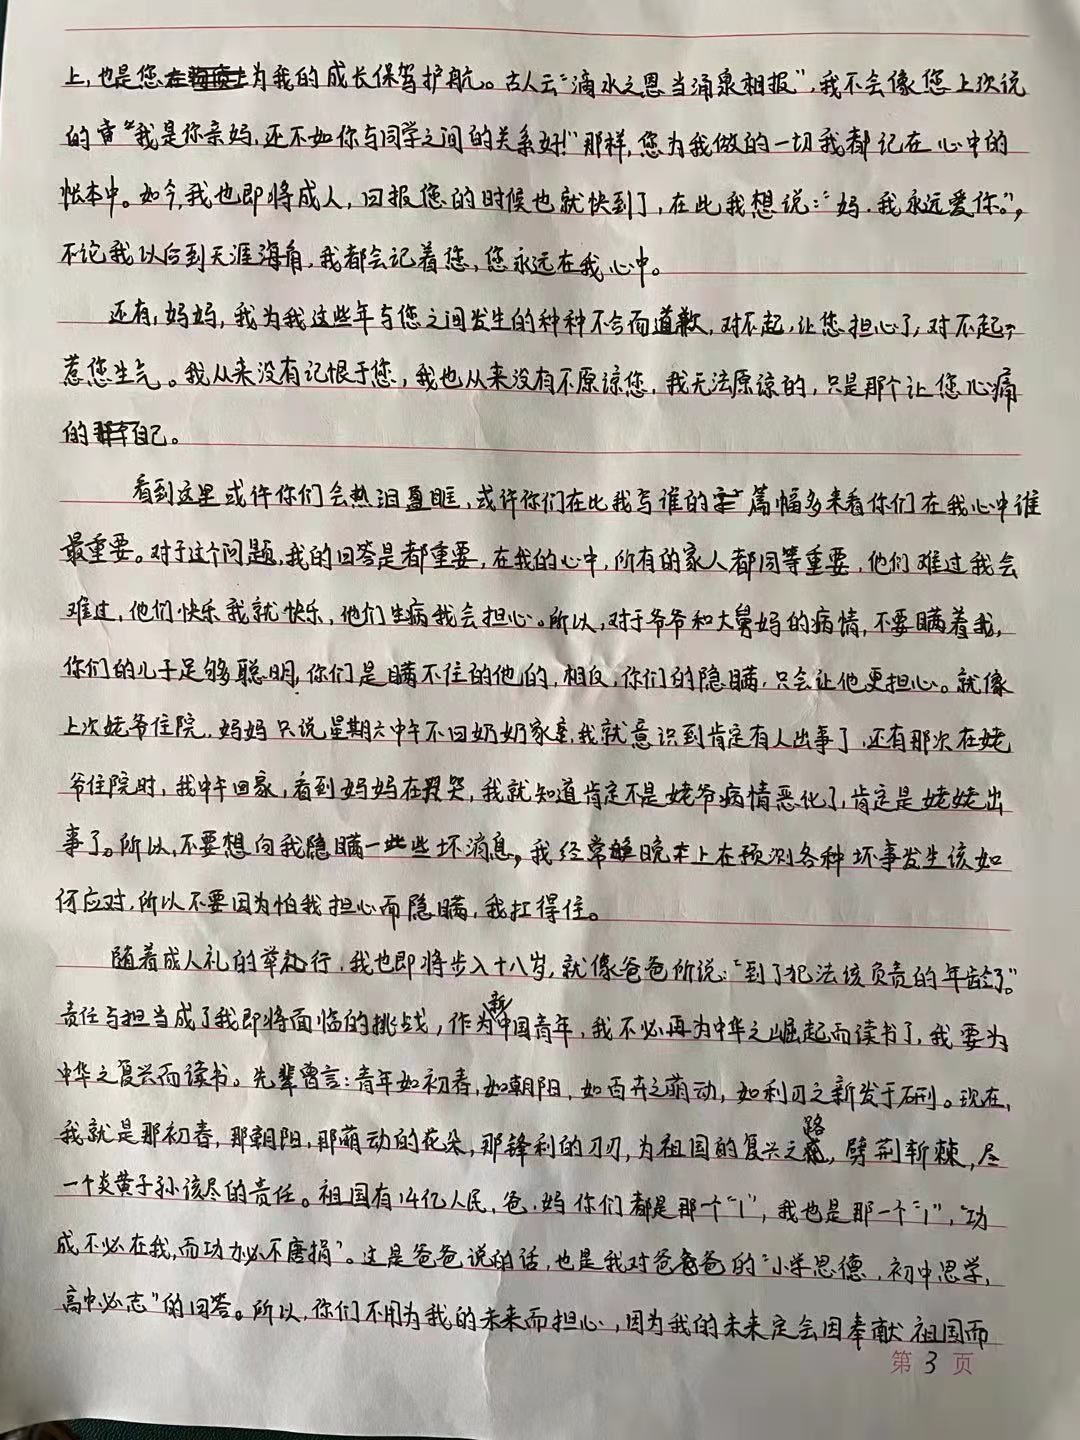 上，也是您为我的成长保驾护航。古人云“滴水之恩当涌泉相报”，我不会像您上次说
的“我是你亲妈，还不如你与同学之间的关系好！”那样，您为我做的一切我都记在心中的
帐本中。如今，我也即将成人，回报您的时候也就快到了，在此我想说：“妈，我永远爱你。”，
不论我以后到天涯海角，我都会记着您，您永远在我心中。
还有，妈妈，我为我这些年与您之间发生的种种不合而道歉，对不起，让您担心了，对不起，
惹您生气。我从来没有记恨于您，我也从来没有不原谅您，我无法原谅的，只是那个让您心痛
的自己。
看到这里或许你们会热泪盈眶，或许你们在比我写谁的篇幅多来看你们在我心中谁
最重要。对于这个问题，我的回答是都重要，在我的心中，所有的家人都同等重要，他们难过我会
难过，他们快乐我就快乐，他们生病我会担心。所以，对于爷爷和大舅妈的病情，不要瞒着我，
你们的儿子足够聪明，你们是瞒不住的他的，相反，你们的隐瞒，只会让他更担心。就像
上次姥爷住院，妈妈只说星期六中午不回奶奶家，我就意识到肯定有人出事了，还有那次在姥
爷住院时，我中午回家，看到妈妈在哭，我就知道肯定不是姥爷病情恶化了，肯定是姥姥出
事了。所以，不要想向我隐瞒一些些坏消息，我经常晚上在预测各种坏事发生该如
何应对，所以不要因为怕我担心而隐瞒，我扛得住。
随着成人礼的举行，我也即将步入十八岁，就像爸爸所说：“到了犯法该负责的年龄了。”
责任与担当成了我即将面临的挑战，作为新中国青年，我不必再为中华之崛起而读书了，我要为
中华之复兴而读书。先辈曾言：青年如初春，如朝阳，如百卉之萌动，如利刃之新发于硎。现在，
我就是那初春，那朝阳，那萌动的花朵，那锋利的刀刃，为祖国的复兴之路，劈荆斩棘，尽
一个炎黄子孙该尽的责任。祖国有14亿人民，爸，妈你们都是那个“1”，我也是那一个“1”，“功
成不必在我，而功力必不唐捐”。这是爸爸说的话，也是我对爸爸的“小学思德，初中思学，
高中必志”的回答。所以，你们不用为我的未来而担心，因为我的未来定会因奉献祖国而
第3页